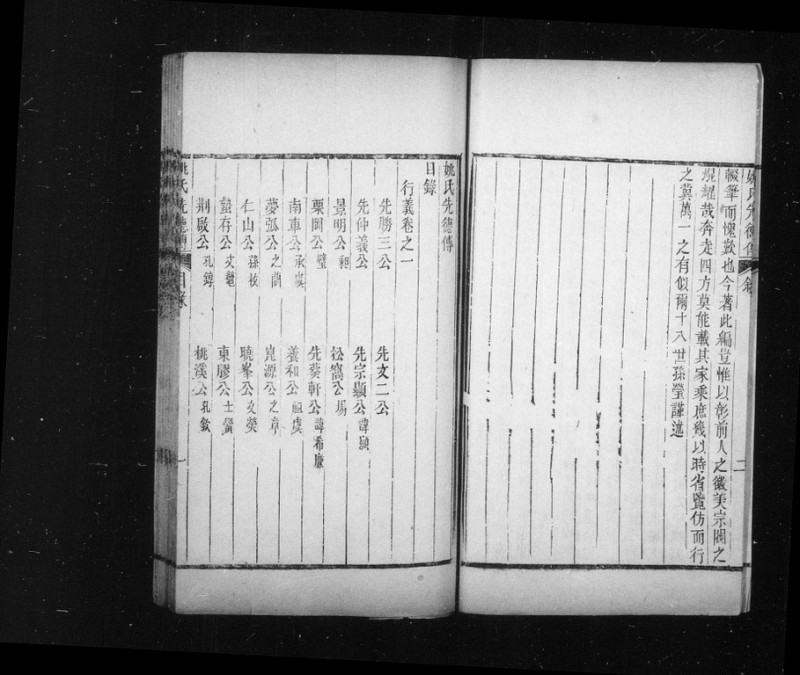 輟筆而愧歎也今著此編豈惟以彰前人之徽美宗閥之
規耀哉奔走四方莫能載其家乘庶幾以時省覽仿而行
之冀萬一之有似爾十八世孫瑩謹述
二
姚氏先德傳
目錄
行義卷之一
先勝三公 先文二公
先仲義公 先宗顯公諱顯
景明公昶 松窩公塲
栗岡公璧 先葵軒公諱希廉
南車公承虞 義和公祖虞
夢弧公之蘭 崑源公之章
仁山公孫枝 曉峯公文熒
蟄存公文鼇 東膠公士黌
荆廠公孔鍀 桃溪公孔欽
姚氏先德傳 目錄 一